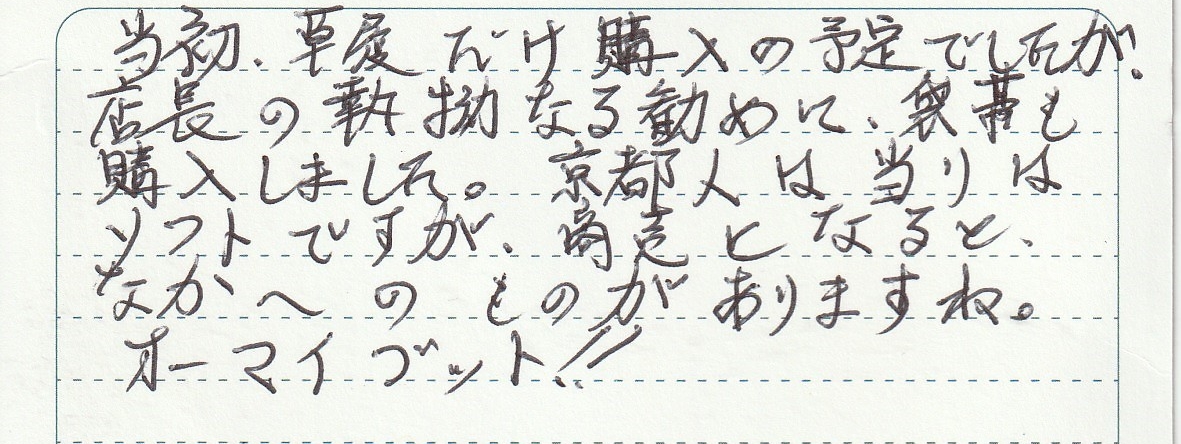 当初、草履だけ購入の予定でしたが、
店長の執拗なる勧めに、袋帯も
購入しました。京都人は当りは
ソフトですが、商売となると、
なかへのものがありますね。
オーマイゴット!!